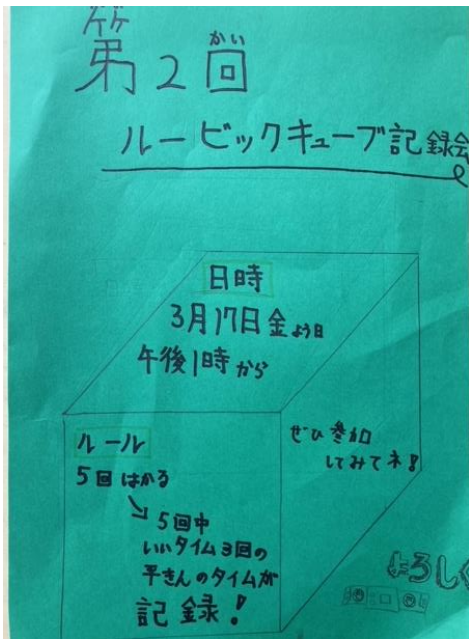 第2回
かい
ルービックキューブ記録会
日時
3月17日金よう日
午後1時から
ルール
5回はかる
↘5回中
いいタイム3回の
平きんのタイムが
記録!
ぜひ参加
してみてネ!
よろしく